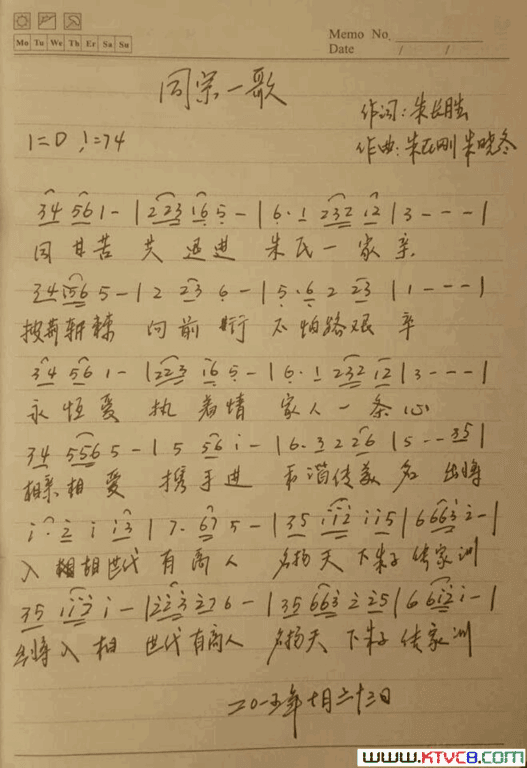 Mo Tu We Th Fr Sa Su
Memo No.
Date / /
同宗一歌
作词:朱长胜
1=D ♩=74
作曲:朱 刚 朱晓冬
34 561 - | 223 16 5 - | 6· 1 232 12 | 3 - - - |
同甘苦 共 进 朱氏一家亲
34 i56 5 - | 2 23 6 - | 5· 6 2 23 | 1 - - - |
披荆斩棘 向前行 不怕路艰辛
34 561 - | 223 16 5 - | 6· 1 232 12 | 3 - - - |
永恒爱 执着情 家人一条心
34 556 5 - | 5 56 i - | 6· 3 2 26 | 5 - - 35 |
相亲相爱 携手进 和谐传美名 出将
i· 2 i i3 | 7· 67 5 - | 35 ii2 ii5 | 6663 2 - |
入相 世代有商人 名扬天下朱子传家训
35 ii2 i - | 223 276 - | 35 663 2 25 | 6 6i2 i - |
出将入相 世代有商人 名扬天下朱子传家训
二0一五年七月二十三日
www.KTVC8.com